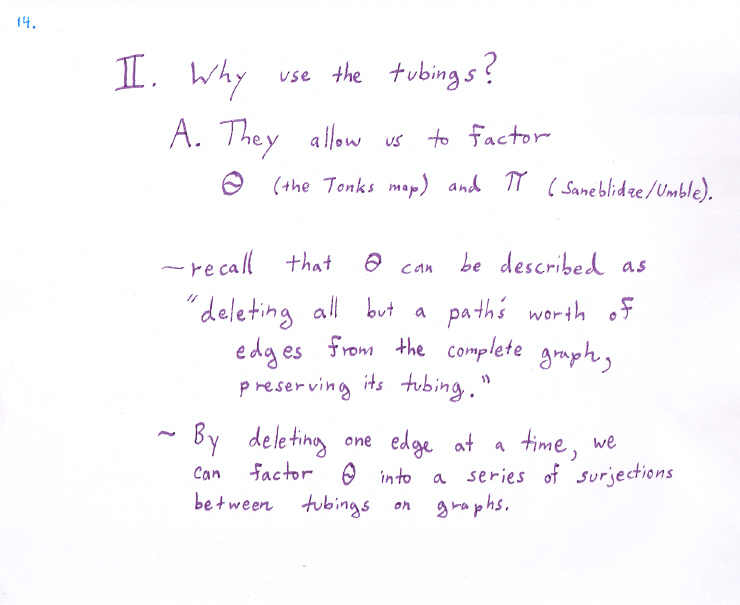 14.
II. Why use the tubings?
A. They allow us to factor
Θ (the Tonks map) and π (Saneblidze/Umble).
~recall that Θ can be described as
"deleting all but a path's worth of
edges from the complete graph,
preserving its tubing."
~ By deleting one edge at a time, we
can factor Θ into a series of surjections
between tubings on graphs.